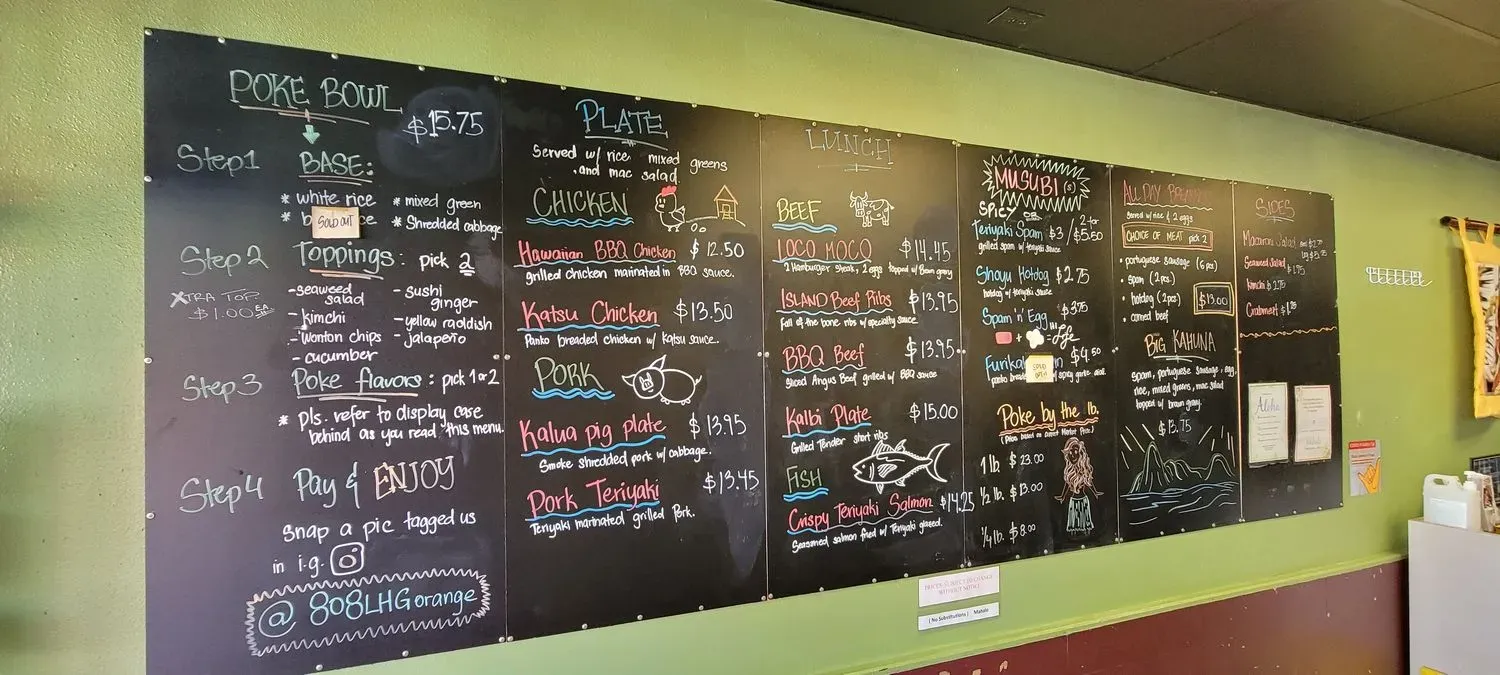 POKE BOWL
$15.75
Step1 BASE:
* white rice * mixed green
SOLD OUT
* Shredded cabbage
Step 2 Toppings: pick 2
XTRA TOP. $1.00 EA
- seaweed salad
- kimchi
- wonton chips
- cucumber
- sushi ginger
- yellow raddish
- jalapeño
Step 3 Poke flavors: pick 1 or 2
* pls. refer to display case
behind as you read this menu.
Step 4 Pay & ENJOY
Snap a pic tagged us
in i.g.
@ 808LHGorange
PLATE
Served w/ rice mixed greens
and mac salad.
CHICKEN
Hawaiian BBQ Chicken $12.50
grilled chicken marinated in BBQ sauce.
Katsu Chicken $13.50
Panko breaded chicken w/ katsu sauce.
PORK
Kalua pig plate $13.95
Smoke shredded pork w/ cabbage.
Pork Teriyaki $13.45
Teriyaki marinated grilled Pork.
LUNCH
BEEF
LOCO MOCO $14.45
2 Hamburger steak, 2 eggs topped w/ Brown gravy
ISLAND Beef Ribs $13.95
Fall of the bone ribs w/ specialty sauce
BBQ Beef $13.95
Sliced Angus Beef grilled w/ BBQ sauce
Kalbi Plate $15.00
Grilled Tender short ribs
FISH
Crispy Teriyaki Salmon $14.25
Seasoned salmon fried w/ Teriyaki glazed.
MUSUBI(s)
SPICY OR
Teriyaki Spam $3 / 2 for $5.50
grilled spam w/ teriyaki sauce
Shoyu Hotdog $2.75
hotdog w/ teriyaki sauce
Spam 'n' Egg $3.75
$4.50
SOLD OUT
Poke by the lb.
(Price based on current Market Price.)
1 lb. $23.00
1/2 lb. $13.00
1/4 lb. $8.00
ALL DAY
served w/ rice & 2 eggs
CHOICE OF MEAT pick 2
• portuguese sausage (6 pcs)
• spam (2 pcs)
• hotdog (2 pcs)
• corned beef
$13.00
BIG KAHUNA
spam, portuguese sausage, egg,
rice, mixed greens, mac salad
topped w/ brown gravy.
$13.75
SIDES
Macaroni Salad
Seaweed Salad $1.75
Kimchi $2.75
Crabmeat
Aloha
PRICES SUBJECT TO CHANGE
WITHOUT NOTICE
( No Substitutions ) Mahalo